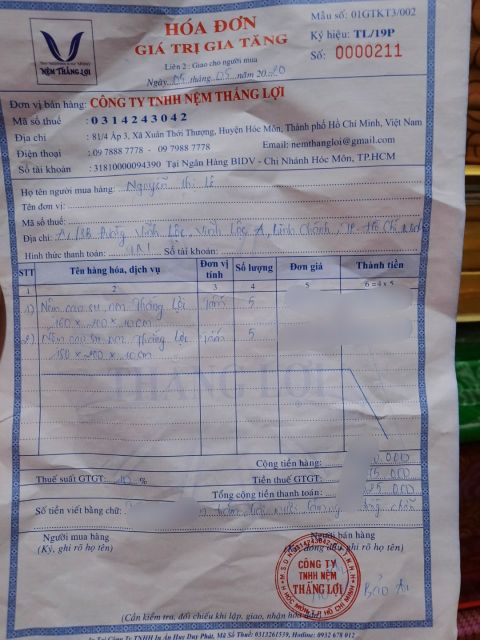 HÓA ĐƠN
GIÁ TRỊ GIA TĂNG
Liên 2: Giao cho người mua
Ngày 05 tháng 05 năm 2020
Mẫu số: 01GTKT3/002
Ký hiệu: TL/19P
Số: 0000211
NỆM THẮNG LỢI
Đơn vị bán hàng: CÔNG TY TNHH NỆM THẮNG LỢI
Mã số thuế : 0314243042
Địa chỉ : 81/4 Ấp 3, Xã Xuân Thới Thượng, Huyện Hóc Môn, Thành phố Hồ Chí Minh, Việt Nam
Điện thoại : 09 7888 7778 - 09 7988 7778 Email: nemthangloi@gmail.com
Số tài khoản : 31810000094390 Tại Ngân Hàng BIDV - Chi Nhánh Hóc Môn, TP.HCM
Họ tên người mua hàng: Nguyễn Thị Lê
Tên đơn vị:
Mã số thuế:
Địa chỉ: Vĩnh Lộc, Vĩnh Lộc A, Bình Chánh, TP. Hồ Chí Minh
Hình thức thanh toán: Số tài khoản:
STT Tên hàng hóa, dịch vụ Đơn vị tính Số lượng Đơn giá Thành tiền
1 2 3 4 5 6 = 4 x 5
1) Nệm cao su non Thắng Lợi Tấm 5
160 x 200 x 10cm
2) Nệm cao su non Thắng Lợi Tấm 5
180 x 200 x 10cm
THẮNG LỢI
Cộng tiền hàng: 0.000
Thuế suất GTGT: 10 % Tiền thuế GTGT: 5.000
Tổng cộng tiền thanh toán: 5.000
Số tiền viết bằng chữ: đồng chẵn
Người mua hàng Người bán hàng
(Ký, ghi rõ họ tên) ghi rõ họ tên)
CÔNG TY
TNHH NỆM
THẮNG LỢI
Bảo Ai
(Cần kiểm tra, đối chiếu khi lập, giao, nhận hóa đơn)
In Tại Công Ty TNHH In Ấn Huy Duy Phát, Mã Số Thuế: 0313261539, Hotline: 0932 678 012